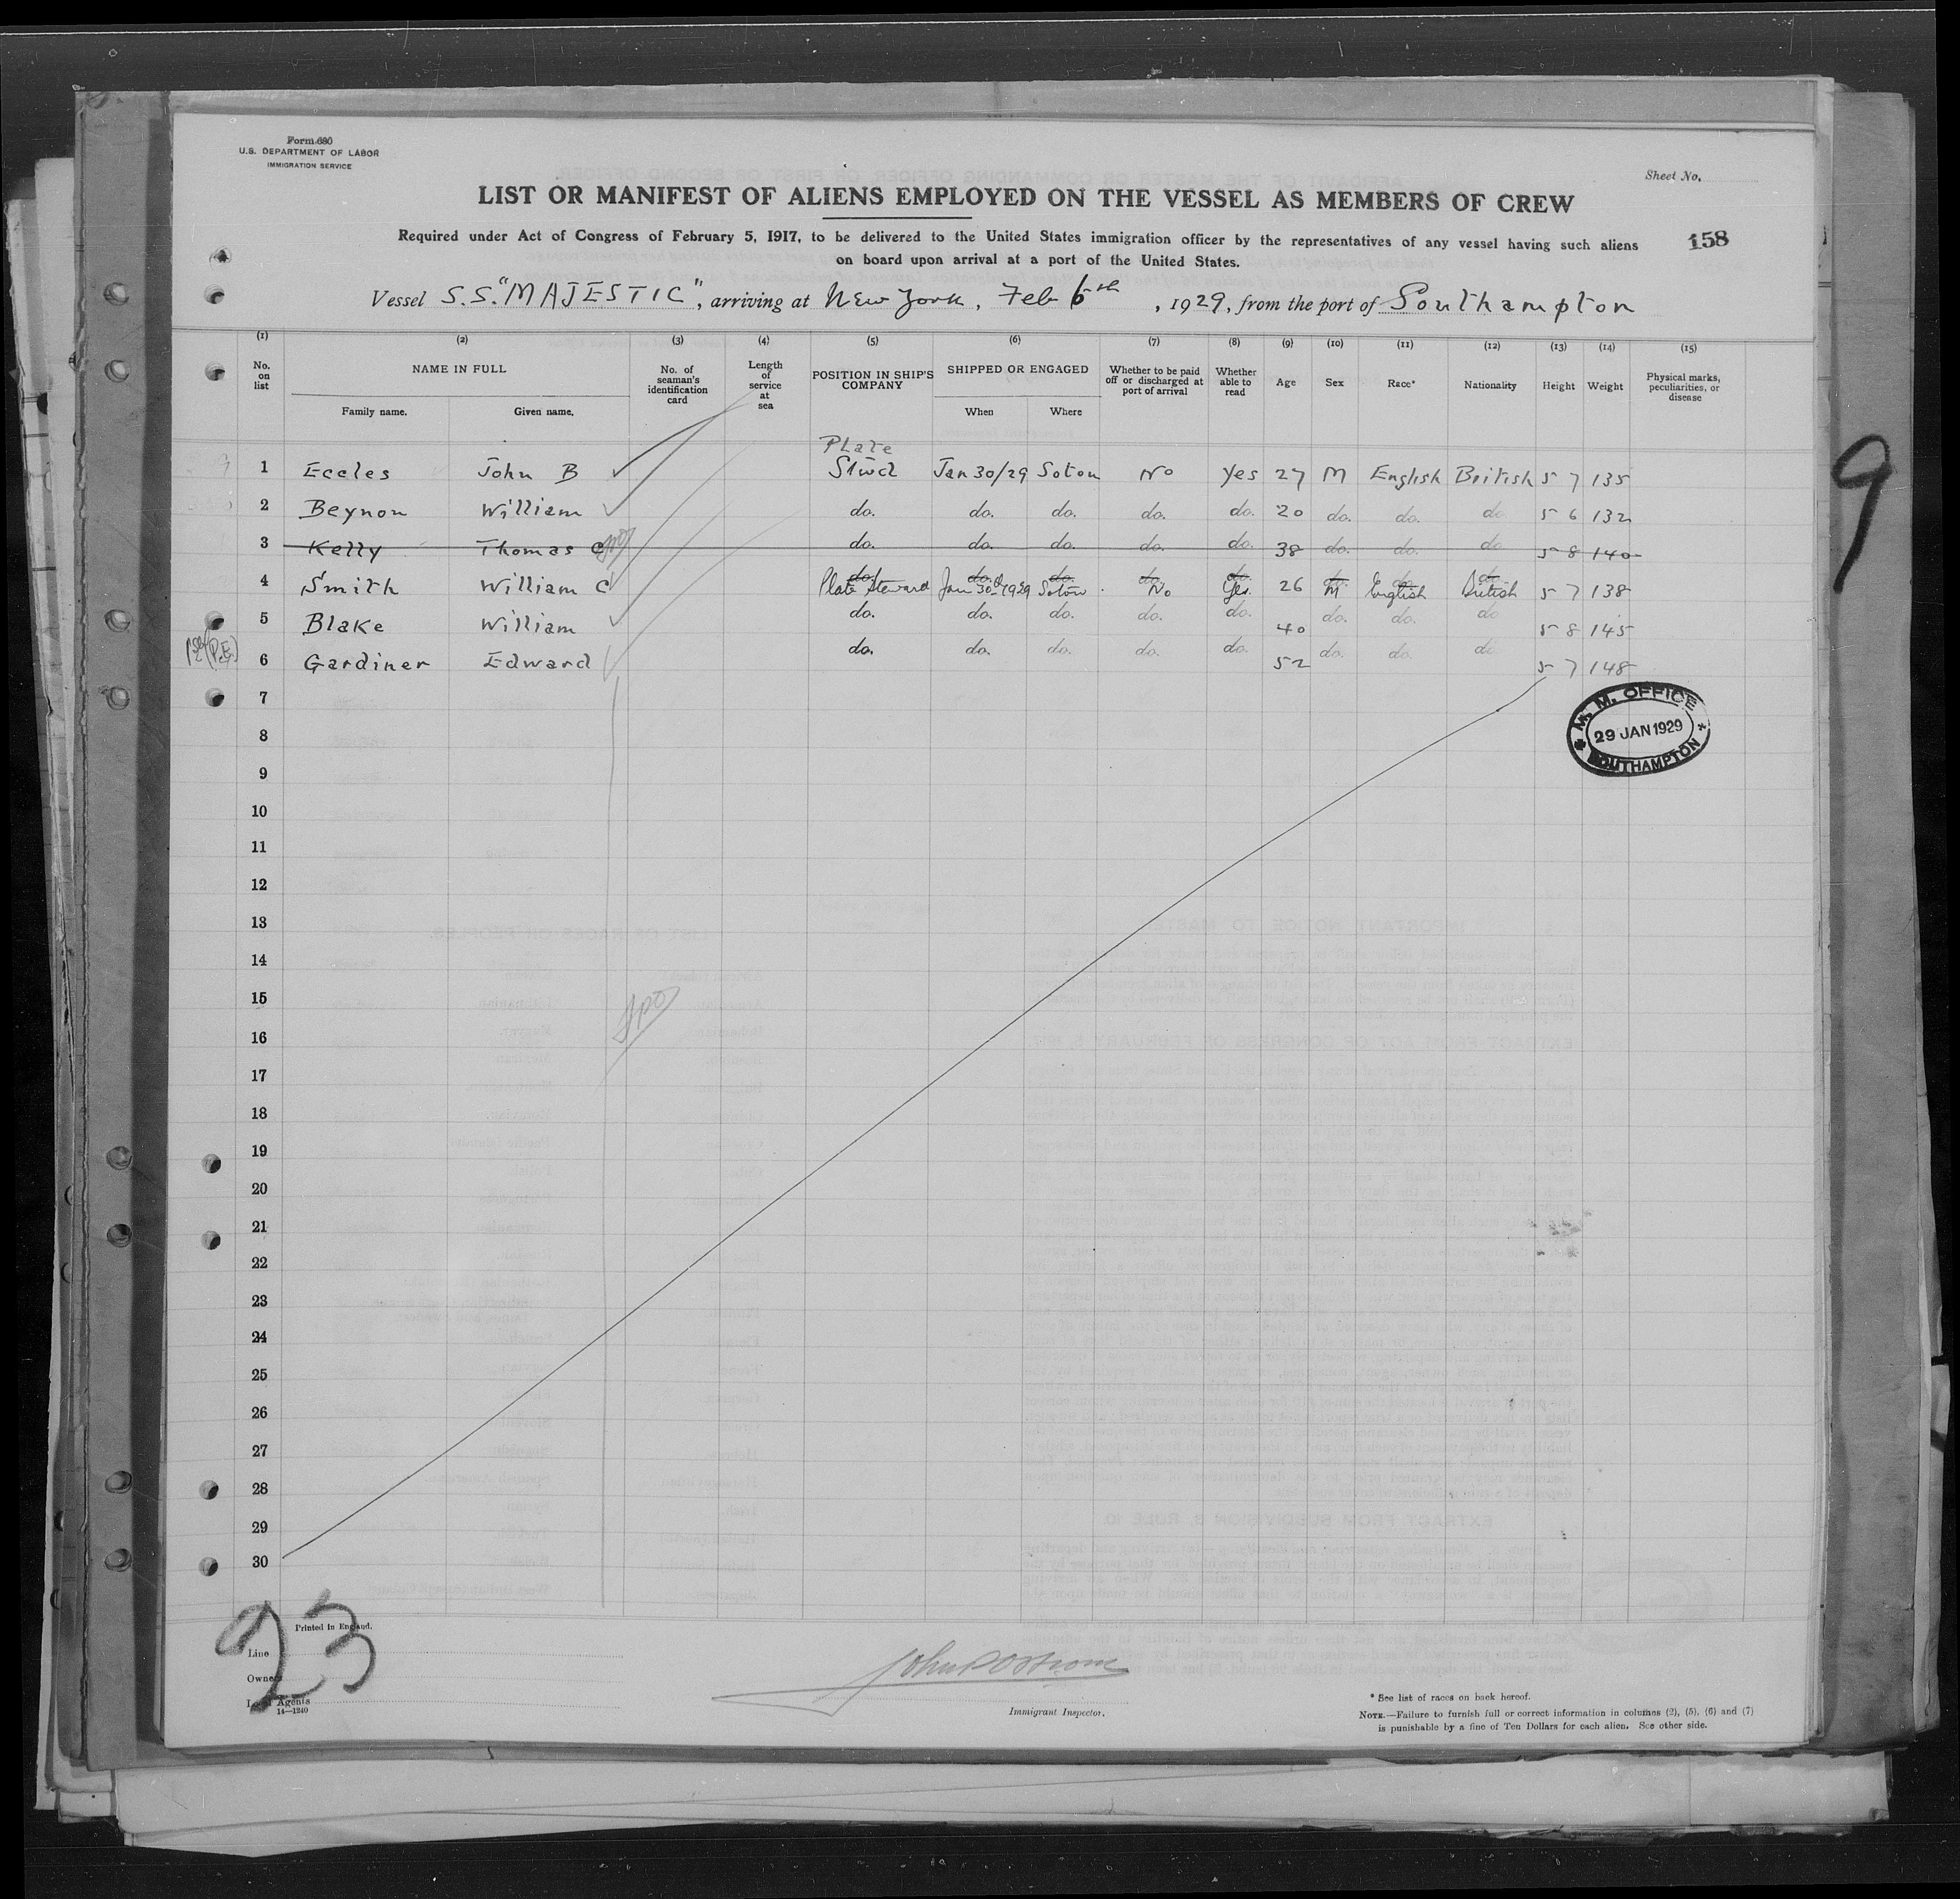 Form 680
U.S. DEPARTMENT OF LABOR
IMMIGRATION SERVICE
Sheet No.
LIST OR MANIFEST OF ALIENS EMPLOYED ON THE VESSEL AS MEMBERS OF CREW
158
Required under Act of Congress of February 5, 1917, to be delivered to the United States immigration officer by the representatives of any vessel having such aliens
on board upon arrival at a port of the United States.
Vessel S.S. "MAJESTIC", arriving at New York, Feb 6th, 1929, from the port of Southampton
(1) (2) (3) (4) (5) (6) (7) (8) (9) (10) (11) (12) (13) (14) (15)
No. on list NAME IN FULL Family name. Given name. No. of seaman's identification card Length of service at sea POSITION IN SHIP'S COMPANY SHIPPED OR ENGAGED When Where Whether to be paid off or discharged at port of arrival Whether able to read Age Sex Race* Nationality Height Weight Physical marks, peculiarities, or disease
Plate
1 Eccles John B Stwd Jan 30/29 Soton No Yes 27 M English British 5 7 135
2 Beynon William do. do. do. do. do. 20 do. do. do 5 6 132
3 Kelly Thomas C do. do. do. do. do. 38 do. do. do 5 8 140
4 Smith William C do. do. do. do. do. do. do. do
Plate Steward Jan 30th 1929 Soton No Yes. 26 M English British 5 7 138
5 Blake William do. do. do. do. do. 40 do. do. do 5 8 145
6 Gardiner Edward do. do. do. do. do. 52 do. do. do 5 7 148
7
M. M. OFFICE
29 JAN 1929
SOUTHAMPTON
8
9
10
11
12
13
14
15
16
17
18
19
20
21
22
23
24
25
26
27
28
29
30
9
23
Printed in England.
Line
Owners
Local Agents
14—1240
Immigrant Inspector.
* See list of races on back hereof.
NOTE.—Failure to furnish full or correct information in columns (2), (5), (6) and (7)
is punishable by a fine of Ten Dollars for each alien. See other side.